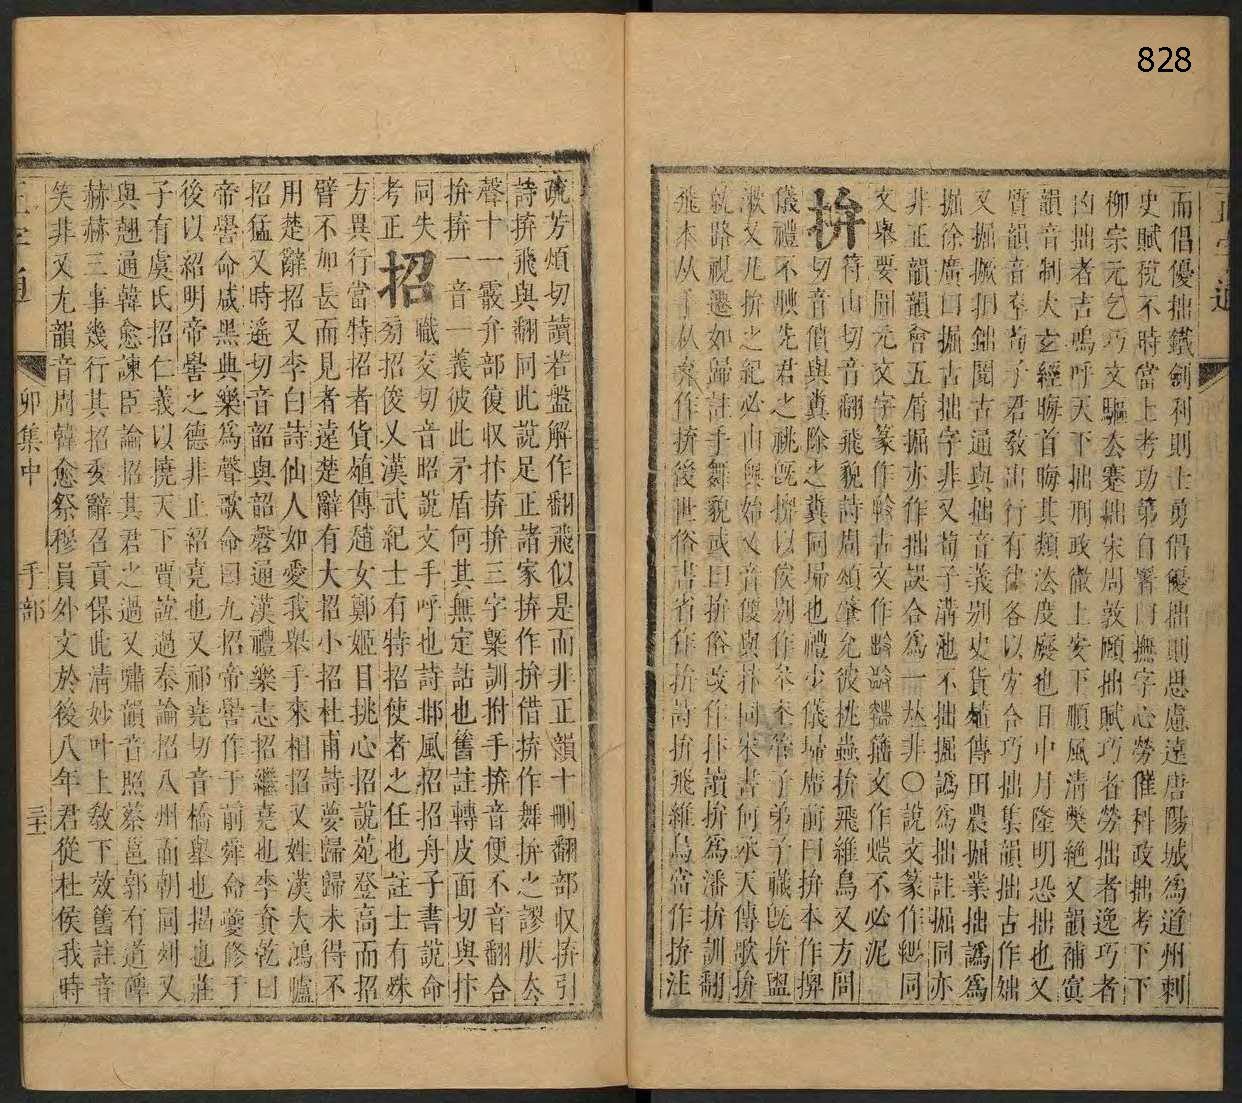 828
而倡優拙鐵劍利則士勇倡優拙則思慮遠唐陽城爲道州刺
史賦稅不時當上考功第自署曰撫字心勞催科政拙考下下
柳宗元乞巧文驅去蹇拙宋周敦頤拙賦巧者勞拙者逸巧者
凶拙者吉嗚呼天下拙刑政徹上安下順風淸獘絕又韻補寘
韻音制太玄經晦首晦其類法度廢也日中月隆明恐拙也又
質韻音荀子君敎出行有律各以宜舍巧拙集韻拙古作㑁
又掘撅扣鈯闕古通與拙音義别史貨殖傳田農掘業拙譌爲
掘徐廣曰掘古拙字非又荀子溝池不拙掘譌爲拙註掘同亦
非正韻韻會五屑掘亦作拙誤合爲一𠀤非〇說文篆作同
文舉要開元文字篆作古文作籀文作不必泥
拚
符山切音翻飛貌詩周頌肇允彼桃蟲拚飛維鳥又方問
切音僨與糞除之糞同埽也禮少儀埽席前曰拚本作㩃
儀禮不腆先君之祧旣㩃以俟别作管子弟子職旣拚盥
漱又凡拚之紀必由奥始又音僾與抃同宋書何承天傳歌拚
就路視遷如歸註手舞貌或曰拚俗改作抃讀拚爲潘拚訓翻
飛本从手从弃作拚後世俗書省作拚詩拚飛維鳥當作拚注
疏芳煩切讀若盤解作翻飛似是而非正韻十刪翻部收拚引
詩拚飛與翻同此說足正諸家拚作拚借拚作舞拚之謬肤去
聲十一霰弁部復收抃拚拚三字槩訓拊手拚音便不音翻合
拚拚一音一義彼此矛盾何其無定詁也舊註轉皮面切與抃
同失
考正
招
職交切音昭說文手呼也詩邶風招招舟子書說命
旁招俊乂漢武紀士有特招使者之任也註士有姝
方異行當特招者貨殖傳趙女鄭姬目挑心招說苑登高而招
臂不加長而見者遠楚辭有大招小招杜甫詩夢歸歸未得不
用楚辭招又李白詩仙人如愛我舉手來相招又姓漢大鴻臚
招猛又時遙切音韶與韶磬通漢禮樂志招繼堯也李賡乾曰
帝嚳命咸黑典樂爲聲歌命曰九招帝嚳作于前舜命夔修于
後以紹明帝嚳之德非止紹堯也又祁堯切音橋舉也揭也莊
子有虞氏招仁義以撓天下賈誼過秦論招八州而朝同列又
與翹通韓愈諫臣論招其君之過又嘯韻音照蔡邕郭有道碑
赫赫三事幾行其招委辭召貢保此淸妙叶上敎下效舊註音
笑非又尤韻音周韓愈祭穆員外文於後八年君從杜侯我時
卯集中 手部 三十二